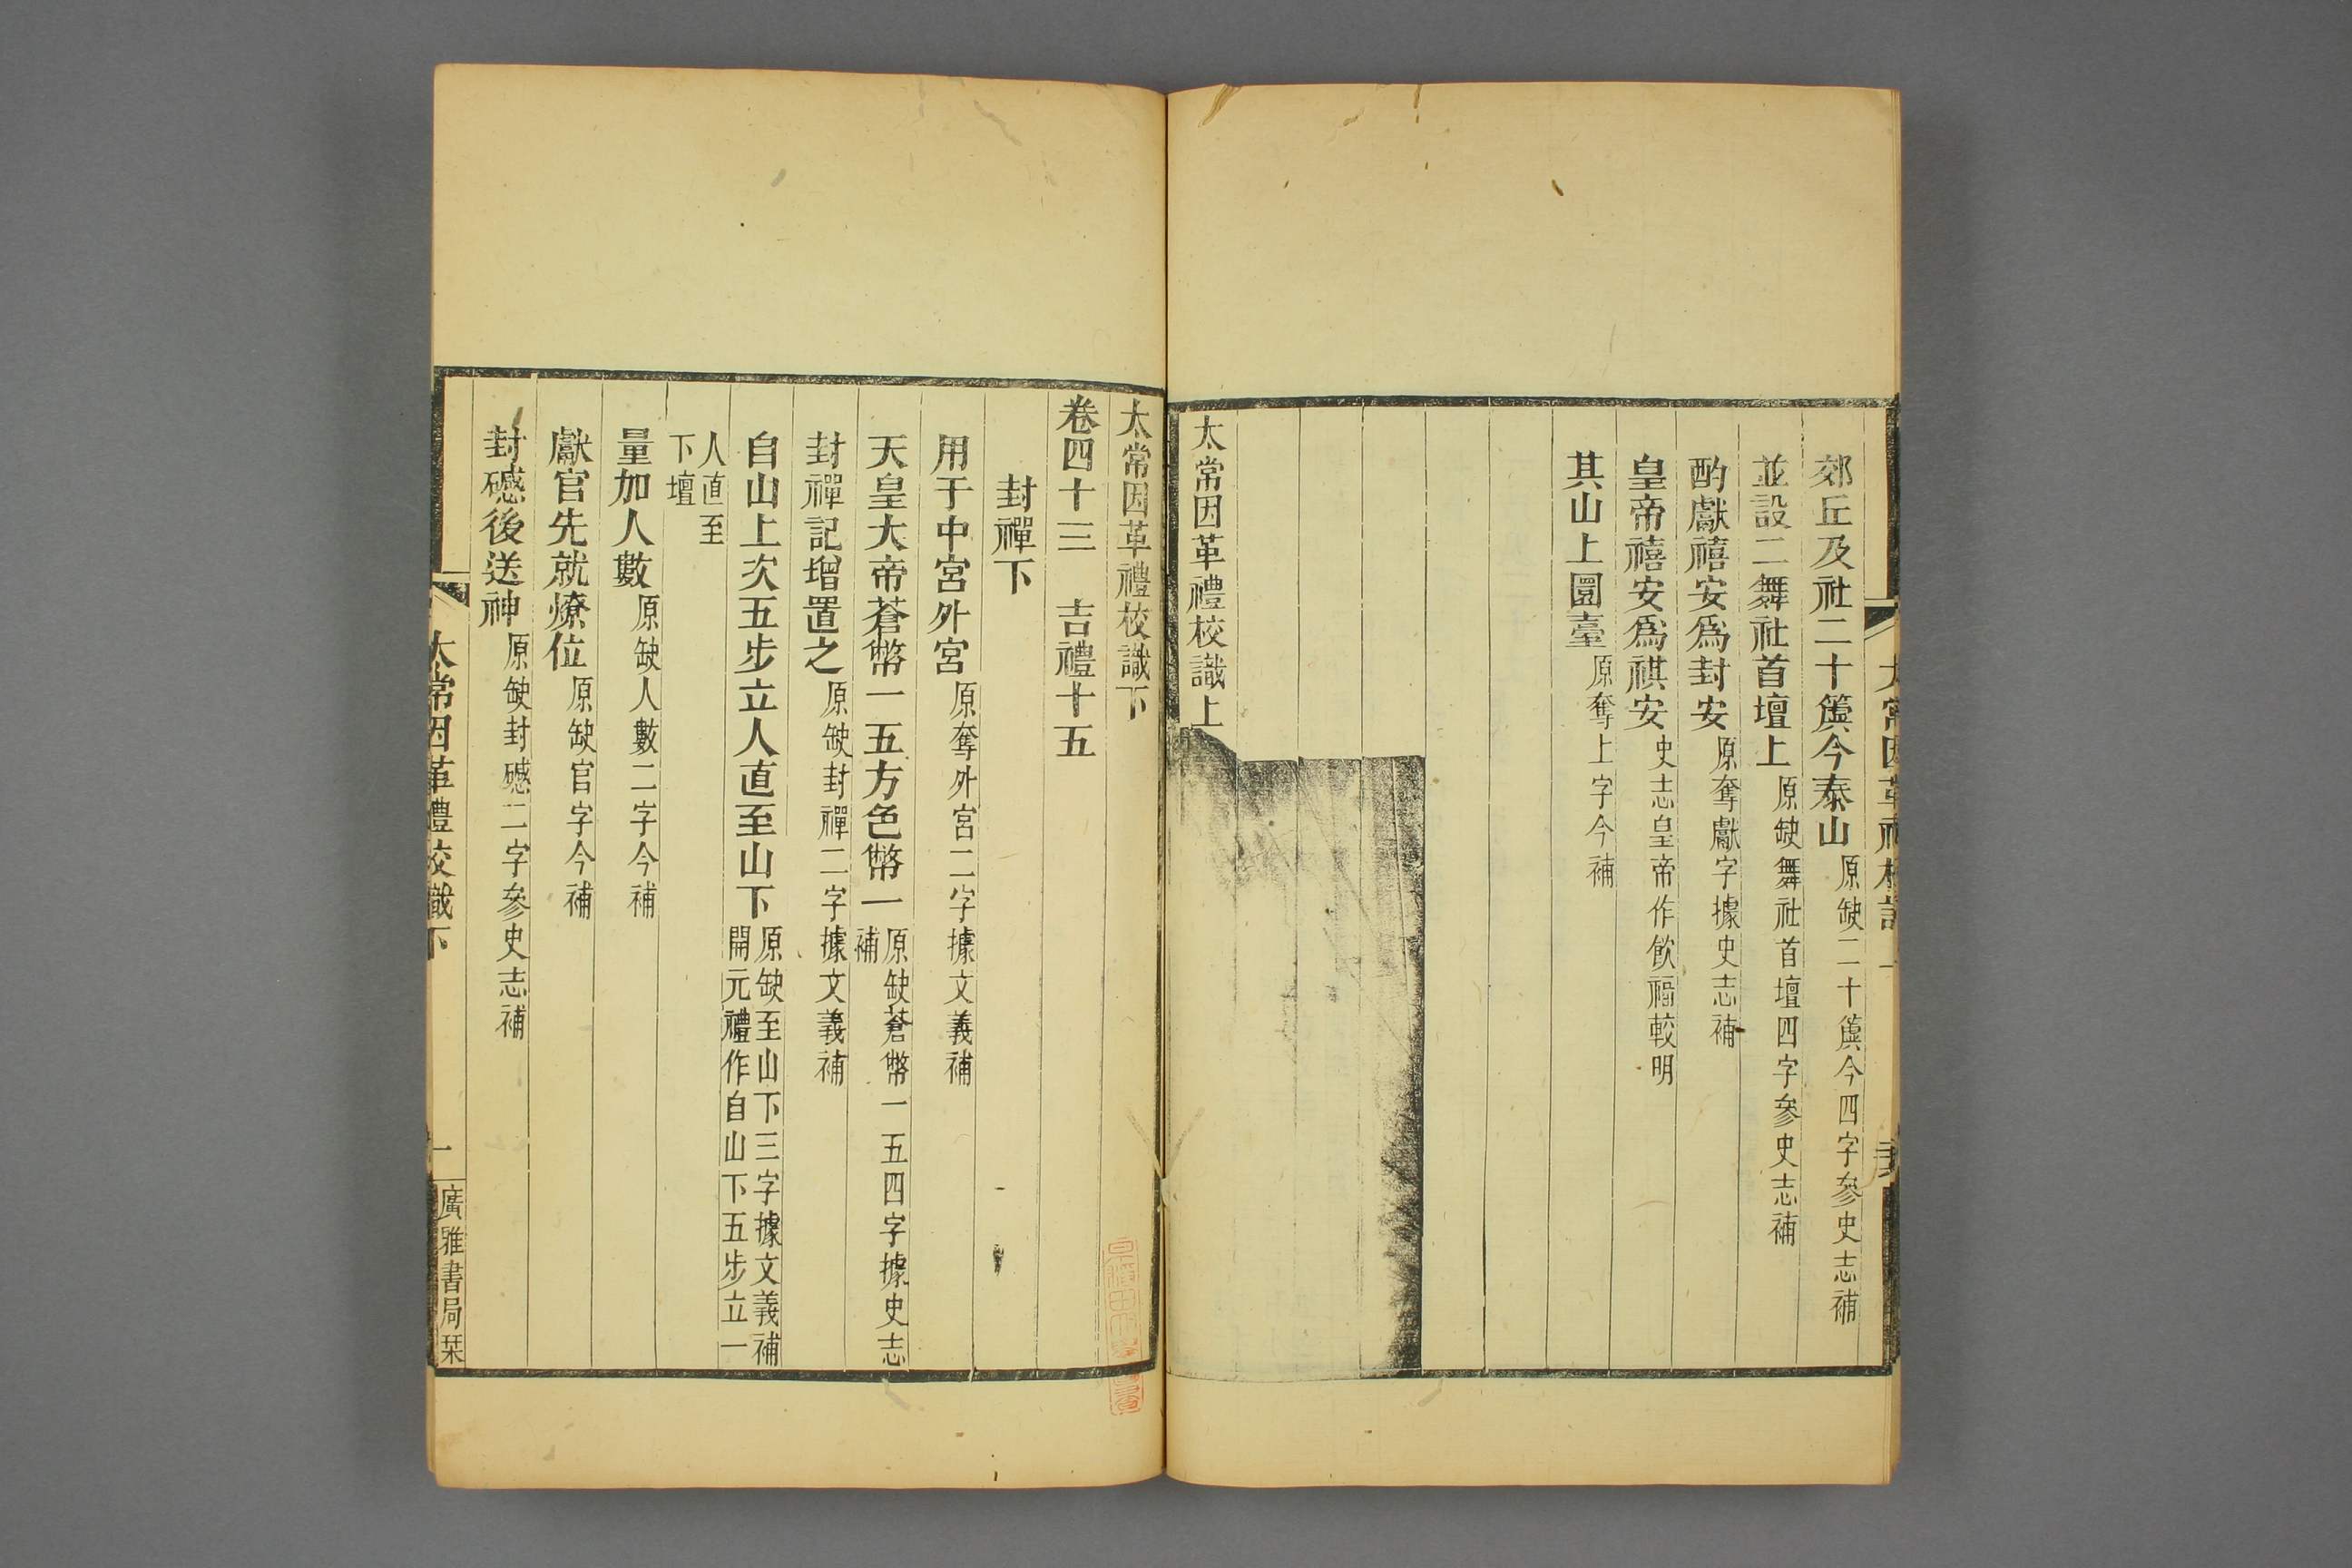 郊丘及社二十簴今泰山原缺二十簴今四字參史志補
並設二舞社首壇上原缺舞社首壇四字參史志補
酌獻禧安爲封安原奪獻字據史志補
皇帝禧安爲祺安史志皇帝作飲福較明
其山上圜臺原奪上字今補
太常因革禮校識上
太常因革禮校識下
卷四十三　吉禮十五
封禪下
用于中宮外宮原奪外宮二字據文義補
天皇大帝蒼幣一五方色幣一原缺蒼幣一五四字據史志補
封禪記增置之原缺封禪二字據文義補
自山上次五步立人直至山下原缺至山下三字據文義補開元禮作自山下五步立一
人直至下壇
量加人數原缺人數二字今補
獻官先就燎位原缺官字今補
封䃭後送神原缺封䃭二字參史志補
太常因革禮校識下
一
廣雅書局栞